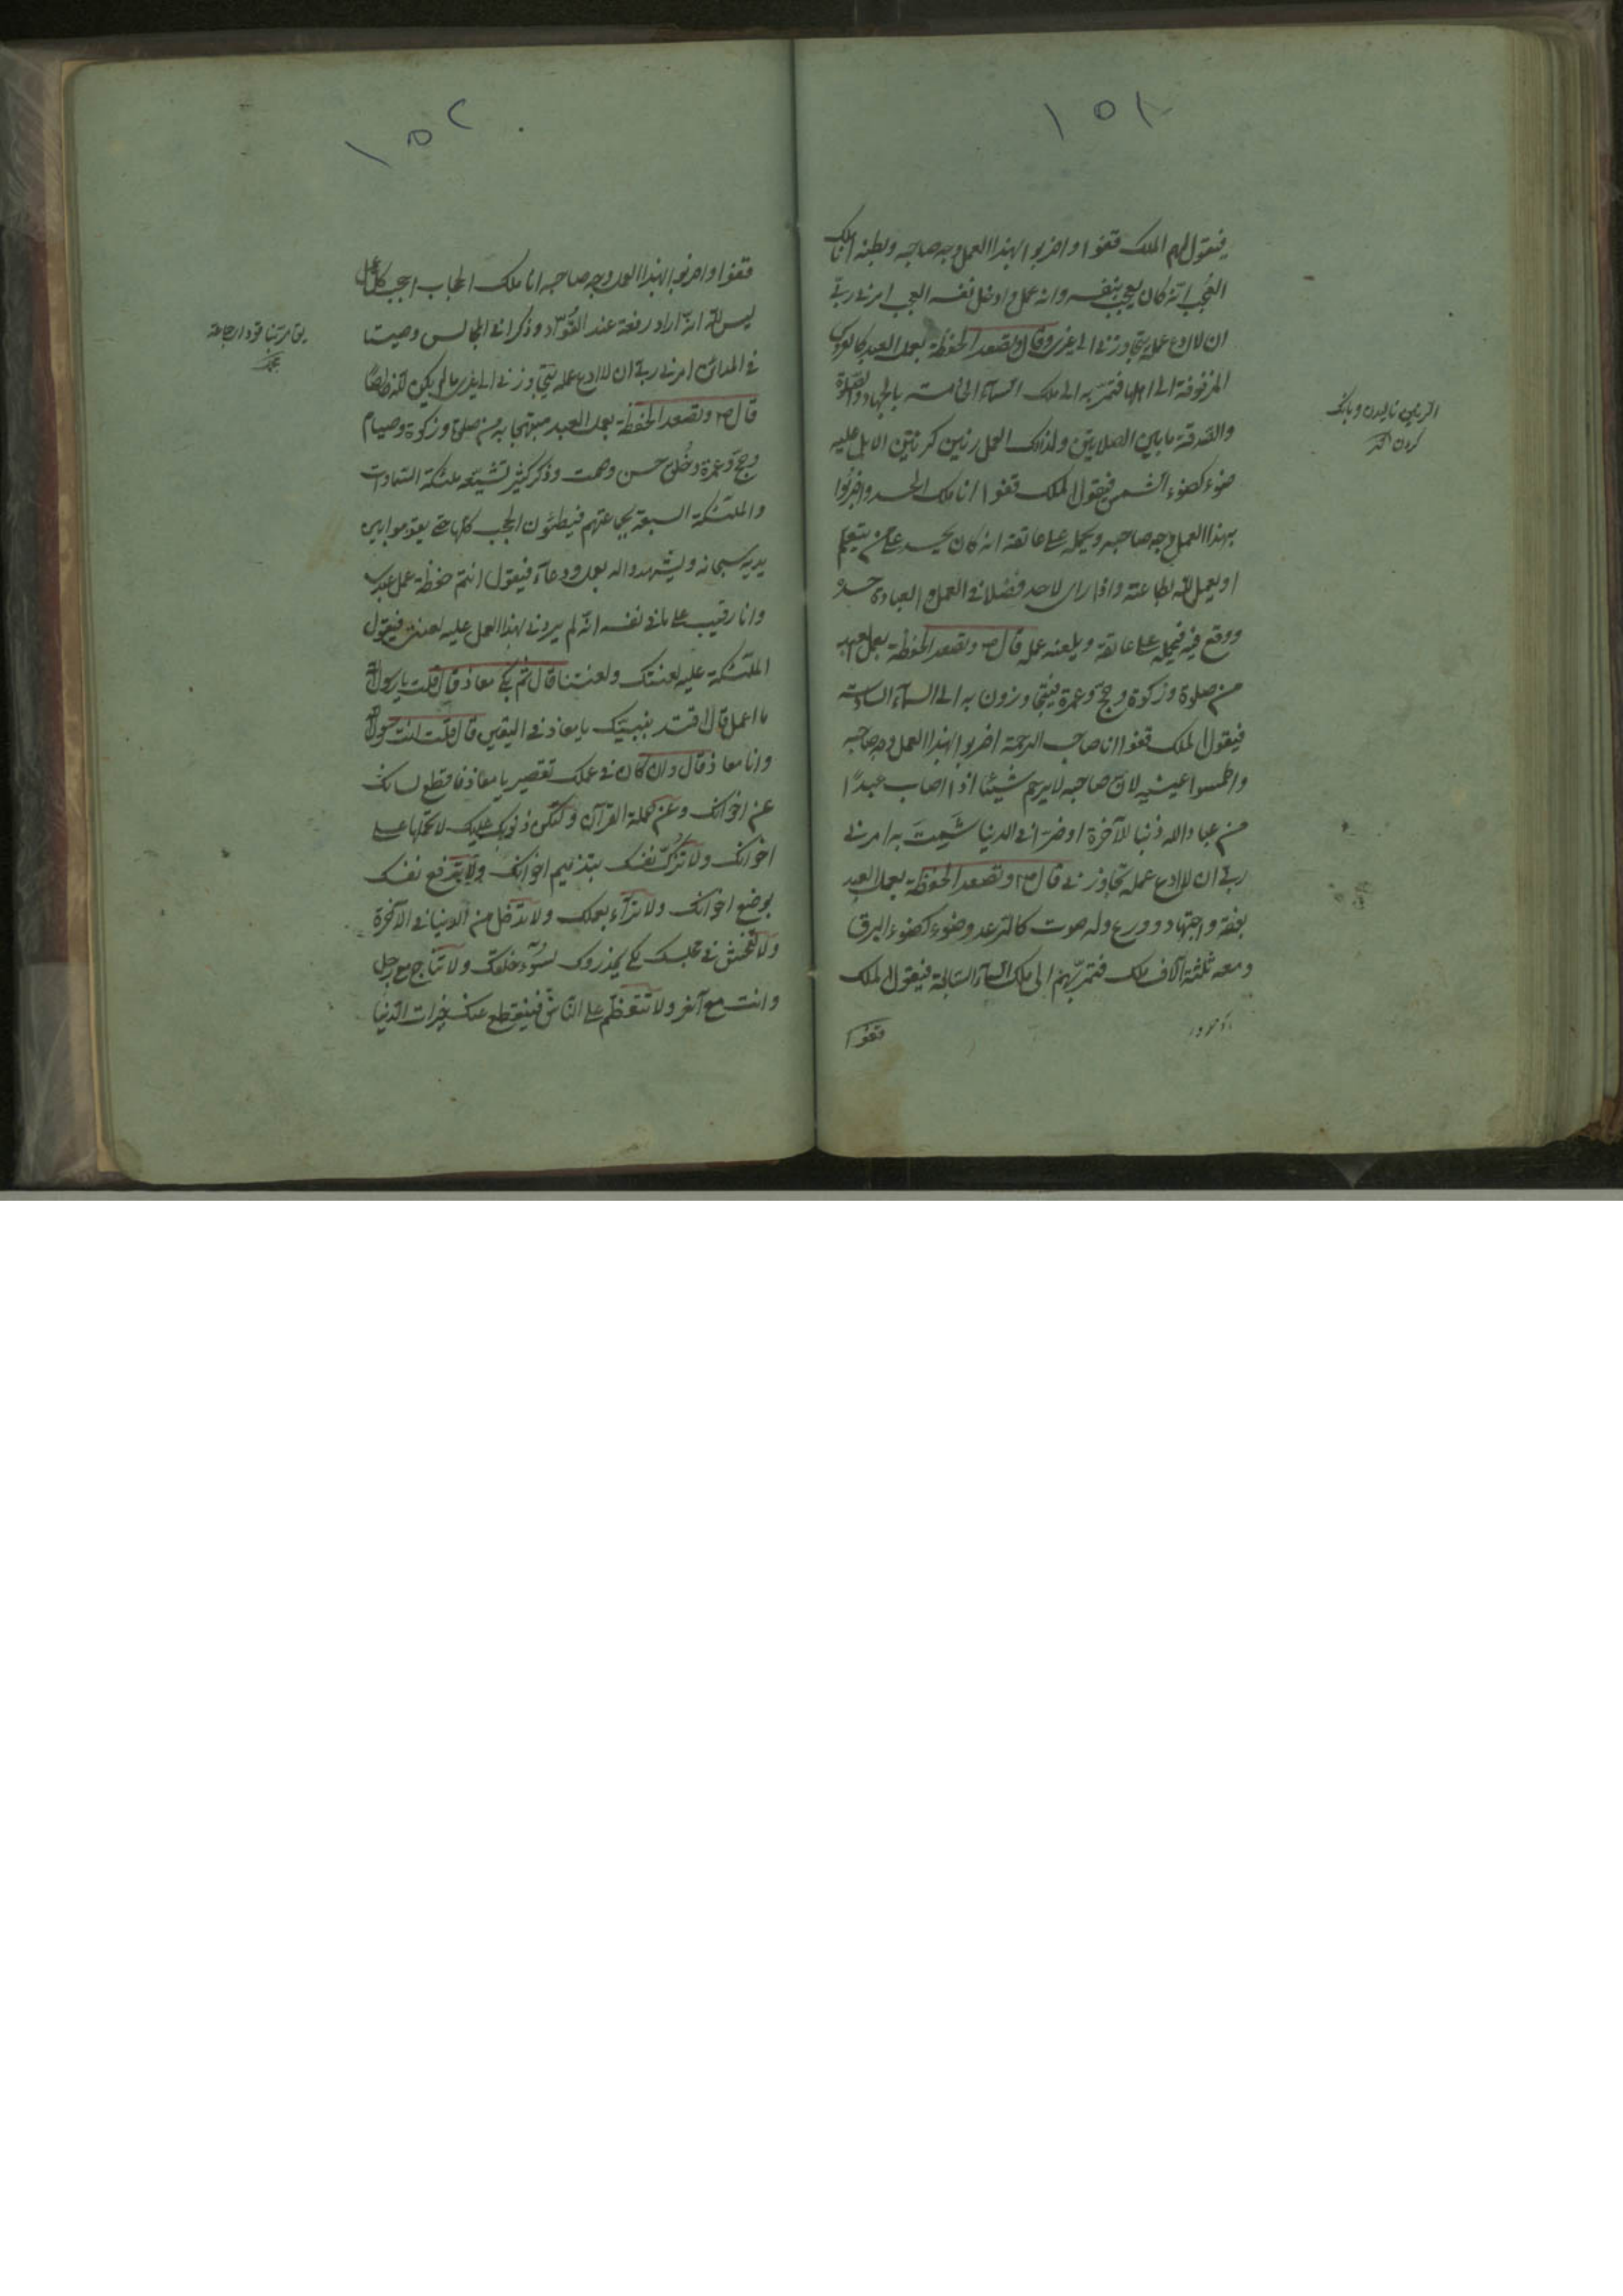 ١٥١
فيقول لهم الملك قفوا واضربوا بهذا العمل وجه صاحبه وبطنه انا ملك
العجب انّه كان يعجب بنفسه وانه عمل وادخل نفسه العجب امرنى ربّى
ان لا ادع عمله يتجاوزنى الى غيرى وقال وتصعد الحفظة بعمل العبد كالعروس
المزفوفة الى اهلها فتمرّ به الى ملك السمآء الخامسة بالجهاد والصلوة
والصّدقة ما بين الصلاتين ولذلك العمل رنين كرنين الابل عليه
ضوء كضوء الشمس فيقول الملك قفوا انا ملك الحسد واضربوا
بهذا العمل وجه صاحبه ويحمله على عاتقه انه كان يحسد على من يتعلم
او يعمل للّه لطاعته واذا راى لاحد فضلا فى العمل والعبادة حسده
ووقع فيه فيحمله على عاتقه ويلعنه عمله قال ص وتصعد الحفظة بعمل العبد
من صلوة وزكوة وحجّ وعمرة فيتجاوزون به الى السمآء السادسة
فيقول الملك قفوا انا صاحب الرحمة اضربوا بهذا العمل وجه صاحبه
واطمسوا عينيه لانّ صاحبه لا يرحم شيئا اذا اصاب عبدًا
من عباد اللّه ذنبا للآخرة او ضرّا فى الدنيا شَمِتَ به امرنى
ربى ان لا ادع عمله تجاوزنى قال ص وتصعد الحفظة بعمل العبد
بفقه واجتهاد وورع وله صوت كالرعد وضوء كضوء البرق
ومعه ثلثة آلاف ملك فتمرّ بهم الى ملك السمآء السابعة فيقول الملك
قفوا
الرنين ناليدن وبانگ
كردن
١٥٢
قفوا واضربوا بهذا العمل وجه صاحبه انا ملك الحجاب احجب كل عمل
ليس للّه انّه اراد رفعة عند القُوّاد وذكرا فى المجالس وصيتا
فى المدائن امرنى ربى ان لا ادع عمله يتجاوزنى الى غيرى ما لم يكن للّه خالصًا
قال ص وتصعد الحفظة بعمل العبد مبتهجا به من صلوة وزكوة وصيام
وحجّ وعمرة وخُلق حسن وصمت وذكر كثير تشيّعه ملئكة السموات
والملئكة السبعة بجماعتهم فيطئون الحجب كلّها حتى يقوموا بين
يديه سبحانه ويشهدوا له بعمل ودعآء فيقول انتم حفظة عمل عبدى
وانا رقيب على ما فى نفسه انّه لم يردنى بهذا العمل عليه لعنتى فيقول
الملئكة عليه لعنتك ولعنتنا قال ثم بكى معاذ قال قلت يا رسول اللّه
ما اعمل قال اقتد بنبيّك يا معاذ فى اليقين قال قلت انت رسول اللّه
وانا معاذ قال وان كان فى عملك تقصير يا معاذ فاقطع لسانك
عن اخوانك وعن حملة القرآن ولتكن ذنوبك عليك لا تحملها على
اخوانك ولا تزكّ نفسك بتذميم اخوانك ولا ترفع نفسك
بوضع اخوانك ولا تراء بعملك ولا تدخل من الدنيا فى الآخرة
ولا تفحش فى مجلسك لكى يحذروك لسوء خلقك ولا تناج مع رجل
وانت مع آخر ولا تتعظّم على الناس فينقطع عنك خيرات الدنيا